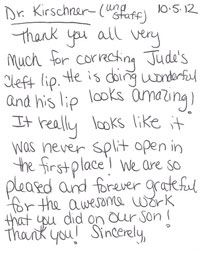 Dr. Kirschner (and staff) 10.5.12
Thank you all very
much for correcting Jude's
cleft lip. He is doing wonderful
and his lip looks amazing!
It really looks like it
was never split open in
the first place! We are so
pleased and forever grateful
for the awesome work
that you did on our son!
Thank you! Sincerely,